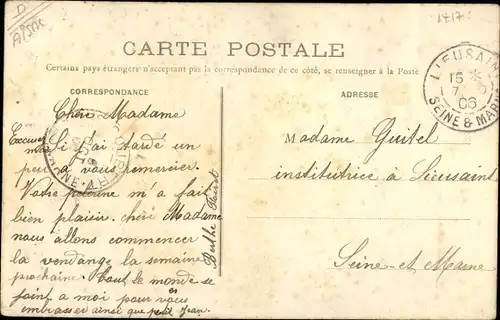 D
Aisne
1417
CARTE POSTALE
Certains pays étrangers n'acceptant pas la correspondance de ce côté, se renseigner à la Poste
CORRESPONDANCE
ADRESSE
LIEUSAINT
15
7
06
SEINE & MARNE
Chère Madame
Excusez moi
Si j'ai tardé un
peu a vous remercier.
Votre pèlerine m'a fait
bien plaisir. chèré Madame
nous allons commencer
la vendange la semaine
prochaine. Tout le monde se
joint a moi pour vous
embrasser ainsi que petit Jean.
Berthe
Madame Guitel
institutrice à Lieusaint
Seine-et Marne